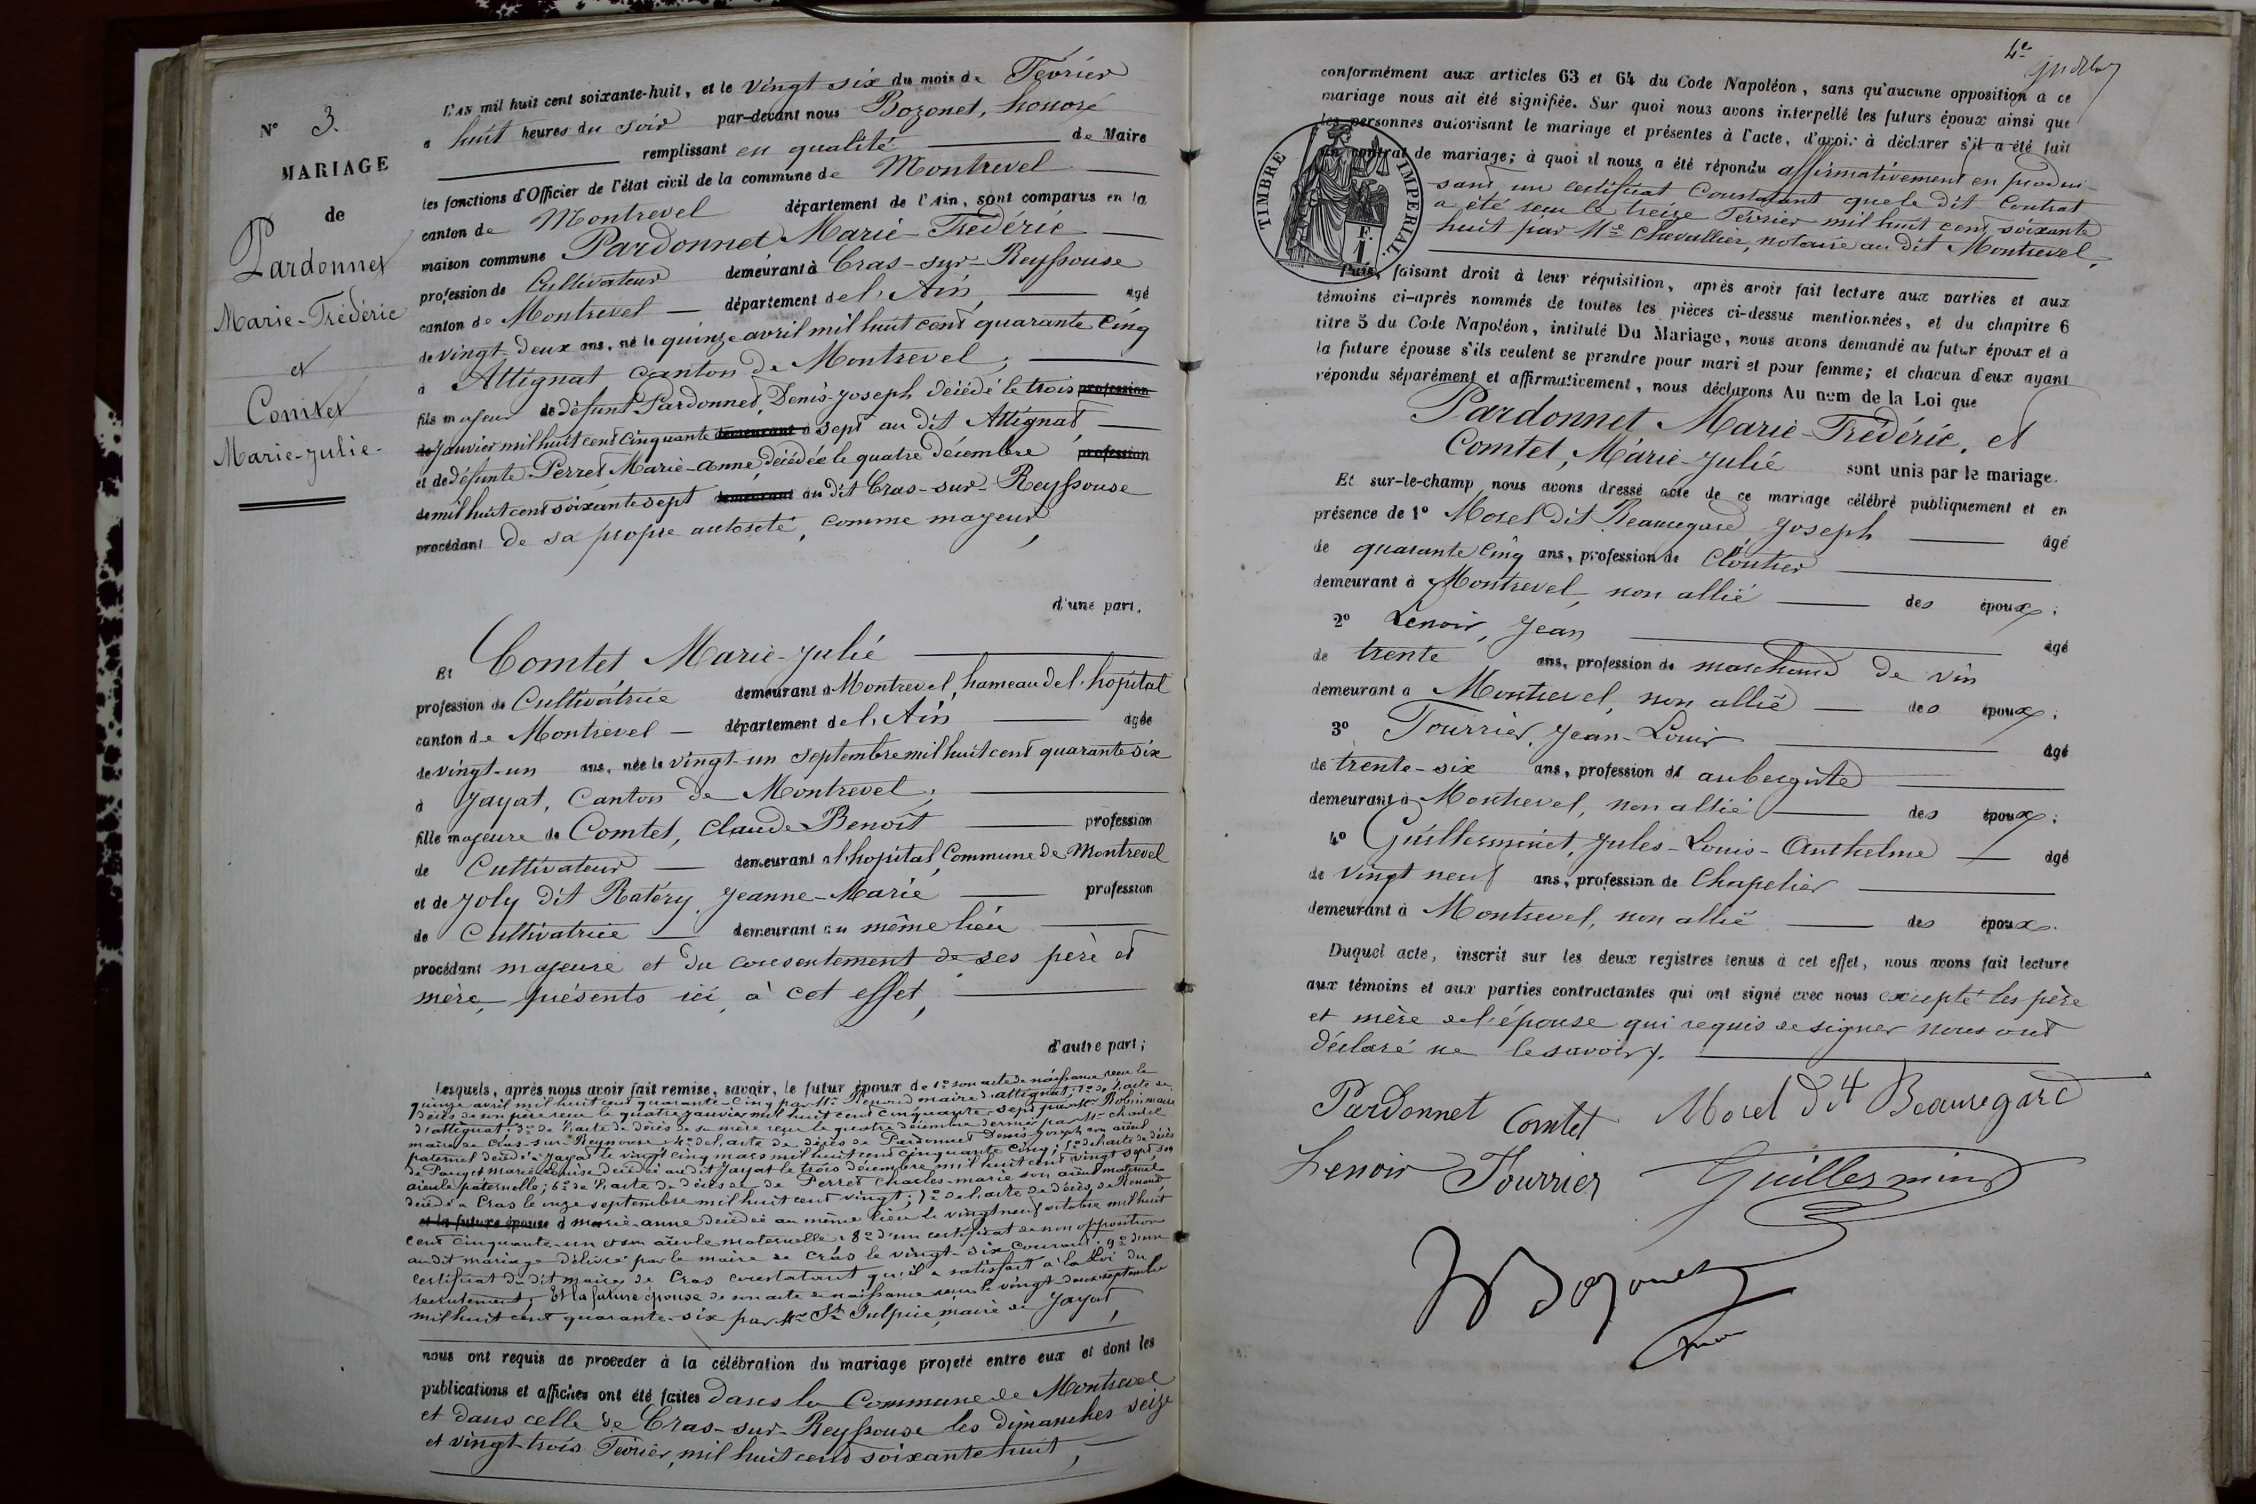 N° 3.
MARIAGE
de
Pardonnet
Marie-Frédéric
et
Comtet
Marie-Julie.
L'AN mil huit cent soixante-huit, et le vingt six du mois de Février
à huit heures du soir par-devant nous Bozonet, honoré
remplissant en qualité de Maire
les fonctions d'Officier de l'état civil de la commune de Montrevel
canton de Montrevel département de l'Ain, sont comparus en la
maison commune Pardonnet Marie-Frédéric
profession de Cultivateur demeurant à Cras-sur-Reyssouse
canton de Montrevel département de l'Ain, âgé
de vingt-deux ans, né le quinze avril mil huit cent quarante cinq
à Attignat canton de Montrevel,
fils majeur de défunt Pardonnet, Denis-Joseph décédé le trois profession
de janvier mil huit cent cinquante demeurant à sept au dit Attignat,
et de défunte Perret Marie-anne, décédée le quatre décembre profession
de mil huit cent soixante sept demeurant au dit Cras-sur-Reyssouse
procédant de sa propre autorité, comme majeur,
d'une part.
Et Comtet Marie-Julie
profession de Cultivatrice demeurant à Montrevel, hameau de l'hopital
canton de Montrevel département de l'Ain âgée
de vingt-un ans, née le vingt-un septembre mil huit cent quarante six
à Jayat, Canton de Montrevel,
fille majeure de Comtet, Claude Benoît profession
de Cultivateur demeurant à l'hopital, Commune de Montrevel
et de Joly dit Ratéry, Jeanne-Marie profession
de Cultivatrice demeurant au même lieu
procédant majeure et du consentement de ses père et
mère, présents ici à cet effet,
d'autre part;
Lesquels, après nous avoir fait remise, savoir, le futur époux de 1° son acte de naissance reçu le
quinze avril mil huit cent quarante-cinq par Mr maire d'attignat; 2° de l'acte de
décès de son père reçu le quatre janvier mil huit cent cinquante-sept par Mr Robin maire
d'attignat; 3° de l'acte de décès de sa mère reçu le quatre décembre dernier par Mr
maire de Cras-sur-Reyssouse; 4° de l'acte de décès de Pardonnet Denis-Joseph son aïeul
paternel décédé à Jayat le vingt cinq mars mil huit cent cinquante cinq; 5° de l'acte de décès
de Marie Louise décédée au dit Jayat le trois décembre mil huit cent vingt sept, son
aïeule paternelle; 6° de l'acte de décès de Perret Charles-marie son aïeul maternel
décédé à Cras le onze septembre mil huit cent vingt; 7° de l'acte de décès de Renoud
et la future épouse d marie-anne décédée au même lieu le vingt neuf octobre mil huit
cent cinquante-un et son aïeule maternelle; 8° d'un certificat de non opposition
au dit mariage délivré par le maire de Cras le vingt-six courant; 9° d'un
certificat du dit maire de Cras constatant qu'il a satisfait à la loi du
recrutement; Et la future épouse de son acte de naissance reçu le vingt-deux septembre
mil huit cent quarante-six par Mr St Sulpice, maire de Jayat,
nous ont requis de procéder à la célébration du mariage projeté entre eux et dont les
publications et affiches ont été faites dans la Commune de Montrevel
et dans celle de Cras-sur-Reyssouse les dimanches seize
et vingt-trois Février, mil huit cent soixante huit,
4e
conformément aux articles 63 et 64 du Code Napoléon, sans qu'aucune opposition à ce
mariage nous ait été signifiée. Sur quoi nous avons interpellé les futurs époux ainsi que
les personnes autorisant le mariage et présentes à l'acte, d'avoir à déclarer s'il a été fait
un contrat de mariage; à quoi il nous a été répondu affirmativement en produi-
sant un certificat constatant que le dit Contrat
a été reçu le treize Février mil huit cent soixante
huit par Me Chevallier, notaire au dit Montrevel,
TIMBRE IMPERIAL
F. 1
Puis, faisant droit à leur réquisition, après avoir fait lecture aux parties et aux
témoins ci-après nommés de toutes les pièces ci-dessus mentionnées, et du chapitre 6
titre 5 du Code Napoléon, intitulé Du Mariage, nous avons demandé au futur époux et à
la future épouse s'ils veulent se prendre pour mari et pour femme; et chacun d'eux ayant
répondu séparément et affirmativement, nous déclarons Au nom de la Loi que
Pardonnet Marie-Frédéric, et
Comtet, Marie-Julie sont unis par le mariage.
Et sur-le-champ nous avons dressé acte de ce mariage célébré publiquement et en
présence de 1° Morel dit Beauregard Joseph âgé
de quarante cinq ans, profession de Cloutier
demeurant à Montrevel, non allié des époux;
2° Lenoir, Jean âgé
de trente ans, profession de marchand de vin
demeurant à Montrevel, non allié des époux;
3° Tourrier, Jean-Louis âgé
de trente-six ans, profession de aubergiste
demeurant à Montrevel, non allié des époux;
4° Guillerminet, Jules-Louis-Anthelme âgé
de vingt neuf ans, profession de Chapelier
demeurant à Montrevel, non allié des époux.
Duquel acte, inscrit sur les deux registres tenus à cet effet, nous avons fait lecture
aux témoins et aux parties contractantes qui ont signé avec nous excepté les père
et mère de l'épouse qui requis de signer nous ont
déclaré ne le savoir.
Pardonnet Comtet Morel dit Beauregard
Lenoir Tourrier Guillerminet
Bozonet